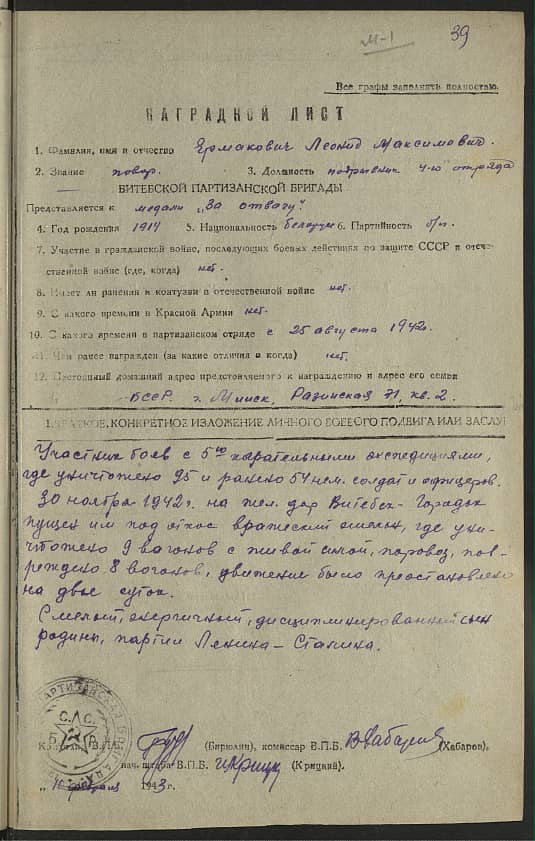 М-1
39
Все графы заполнять полностью.
НАГРАДНОЙ ЛИСТ
1. Фамилия, имя и отчество Ермакович Леонид Максимович.
2. Звание повар. 3. Должность подрывник 4-го отряда
ВИТЕБСКОЙ ПАРТИЗАНСКОЙ БРИГАДЫ
Представляется к медали „За отвагу".
4. Год рождения 1914 5. Национальность белорус 6. Партийность б/п.
7. Участие в гражданской войне, последующих боевых действиях по защите СССР и отече-
ственной войне (где, когда) нет.
8. Имеет ли ранения и контузии в отечественной войне нет.
9. С какого времени в Красной Армии нет.
10. С какого времени в партизанском отряде с 25 августа 1942г.
11. Чем ранее награжден (за какие отличия и когда) нет.
12. Постоянный домашний адрес представляемого к награждению и адрес его семьи
БССР г. Минск, Разинская 71, кв. 2.
I. КРАТКОЕ, КОНКРЕТНОЕ ИЗЛОЖЕНИЕ ЛИЧНОГО БОЕВОГО ПОДВИГА ИЛИ ЗАСЛУГ
Участник боев с 5ю карательными экспедициями,
где уничтожено 95 и ранено 54 нем. солдат и офицеров.
30 ноября 1942г. на жел. дор Витебск - Городок
пущен им под откос вражеский эшелон, где уни-
чтожено 9 вагонов с живой силой, паровоз, пов-
реждено 8 вагонов, движение было приостановлено
на двое суток.
Смелый, энергичный, дисциплинированный сын
родины, партии Ленина - Сталина.
ПАРТИЗАНСКАЯ БРИГАДА
В.П.Б. (Бирюлин), комиссар В.П.Б. ВХабаров (Хабаров).
нач. штаба В.П.Б. ИКрицк (Крицкий).
„10 февраля 1943г.